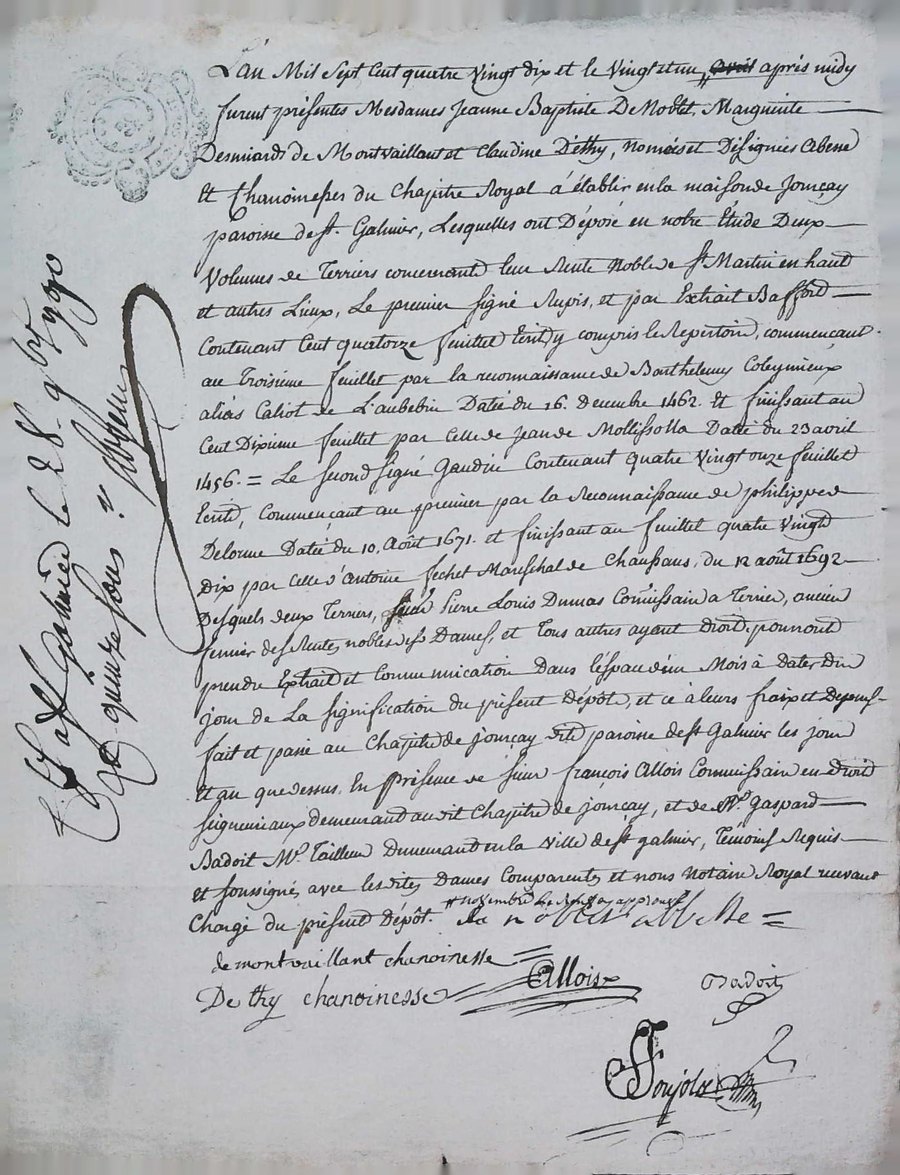 L'an Mil Sept Cent quatre Vingt dix et le Vingt et un, avril après midy
furent présentes Mesdames Jeanne Baptiste De Noblet, Marguerite
Desmiards de Montvaillant et Claudine Dethy, Nomées et Désignées Abesse
et Chanoinesses du Chapitre Royal à établir en la maison de Jourçay
paroisse de St. Galmier, Lesquelles ont Déposé en notre Etude Deux
Volumes de Terriers concernant leur Rente Noble de St Martin en haut
et autres Lieux, Le premier Signé Rupis, et par Extrait Bafford
Contenant Cent Quatorze feuillet Ecrit y compris le Repertoire, commençant
au Troisieme feuillet par la reconnaissance de Barthelemy Coleynieux
aliàs Caliot de L'aubebin Datée du 16. Decembre 1462. et finissant au
Cent Dixieme feuillet par Celle de Jean de Mollissolla Datée du 23 avril
1456. = Le second Signé Gaudin Contenant quatre Vingt onze feuillet
Ecrit, Commençant au premier par la Reconnaissance de philippe
Delorme Datée du 10. Août 1671. et finissant au feuillet quatre Vingt
Dix par Celle d'Antoine fechet Mareschal de Chaussans, du 12 août 1692
Desquels deux Terriers, Sieur Pierre Louis Dumas Commissaire a Terrier, ancien
fermier des Rentes nobles des Dames, et Tous autres ayant Droit, pourront
prendre Extrait et Communication Dans l'éspace d'un Mois à Dater du
jour de La signification du présent Dépôt, et ce à leurs fraix et Depens
fait et passé au Chapitre de jourçay dite paroisse de St Galmier les jour
et an que dessus. En Présence de sieur françois Allois Commissaire en Droits
seigneuriaux demeurant au dit Chapitre de jourçay, et de Mr. Gaspard
Badoit Md. Tailleur Demeurant en la Ville de St galmier, Témoins Requis
et soussignés avec lesdites Dames Comparantes et nous Notaire Royal recevant
Chargé du présent Dépôt. # novembre le Renvoy approuvé De noblet abbesse =
de montvaillant chanoinesse Allois Badoit
De thy chanoinesse
Ponjolx
à St Galmier le 28. 9bre 1790
R quinze sous.